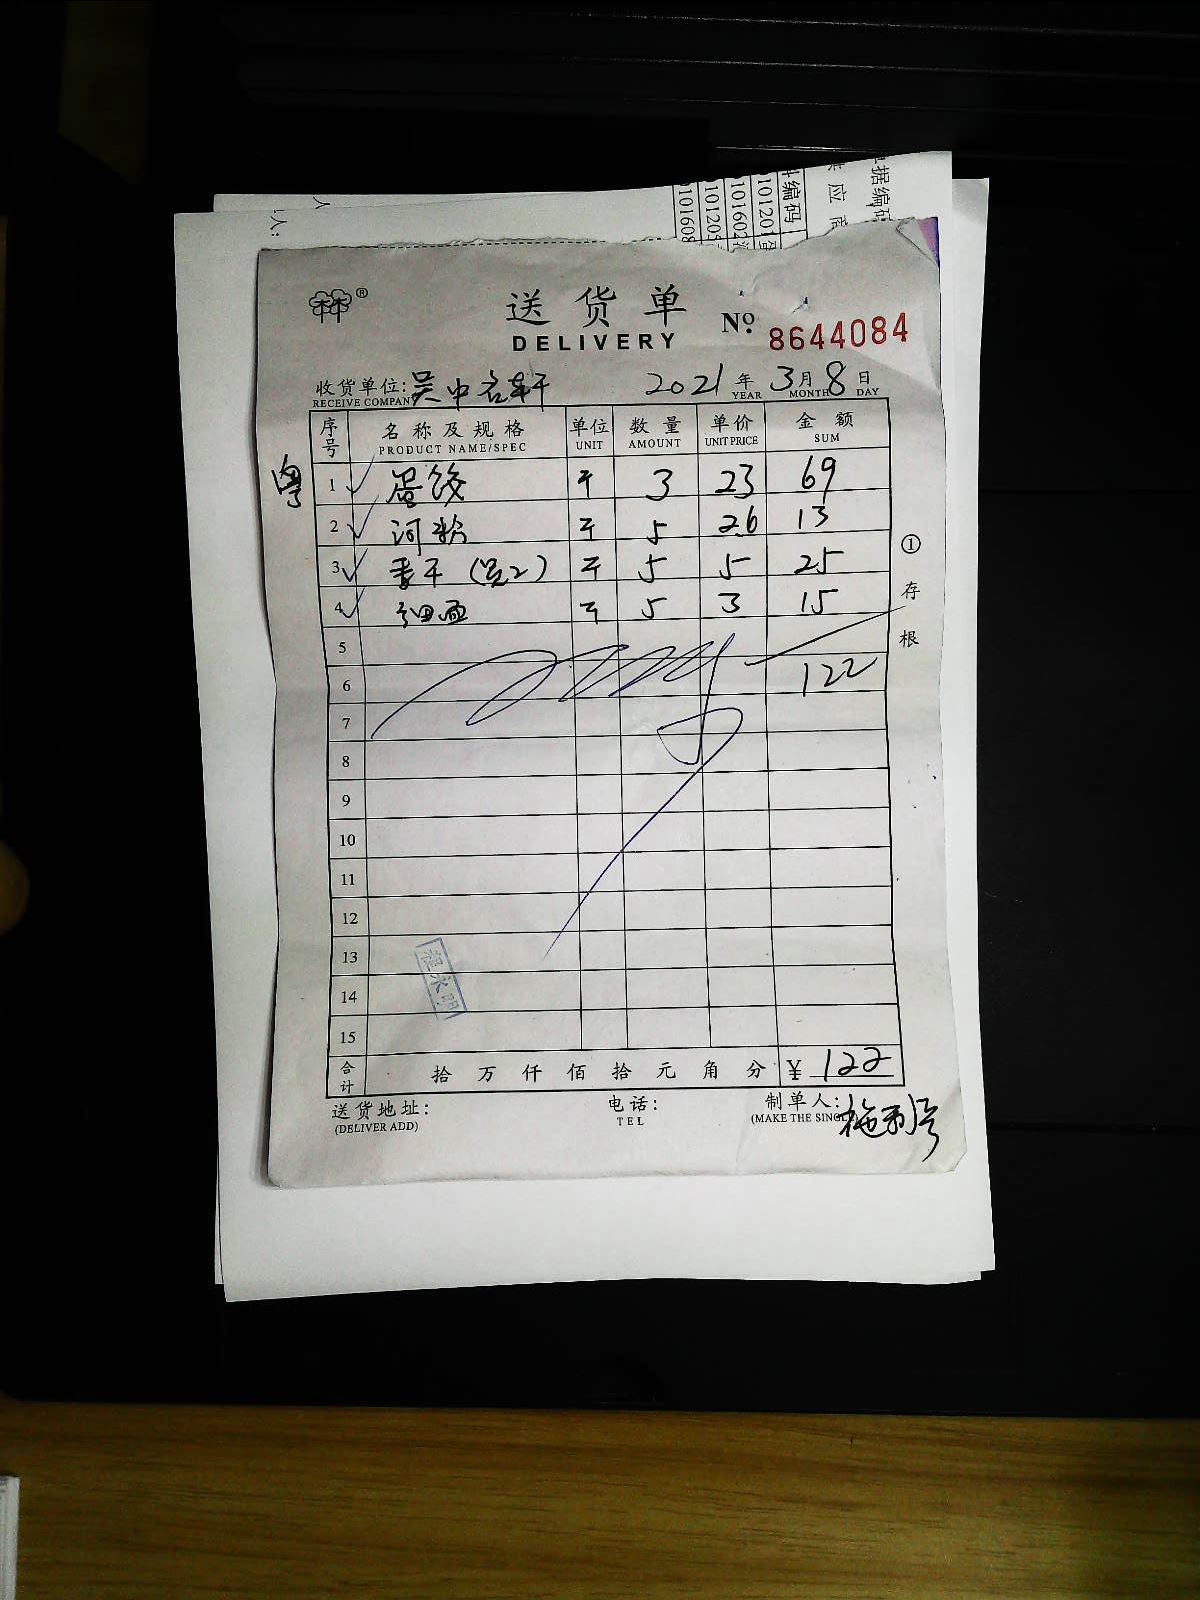 单据编码
供应商
件编码
101201
101602
101205
0101608
人:
®
送货单
DELIVERY
No. 8644084
收货单位: 吴中名轩 2021年3月8日
RECEIVE COMPANY YEAR MONTH DAY
序号 名称及规格 单位 数量 单价 金额
PRODUCT NAME/SPEC UNIT AMOUNT UNIT PRICE SUM
粤
1 蛋饺 斤 3 23 69
2 河粉 斤 5 2.6 13
3 干 斤 5 5 25
4 细面 斤 5 3 15
5
6 122
7
8
9
10
11
12
13
14
15
程永明
合计 拾万仟佰拾元角分 ¥ 122
送货地址: 电话: 制单人:
(DELIVER ADD) TEL (MAKE THE SINGLE)
① 存根